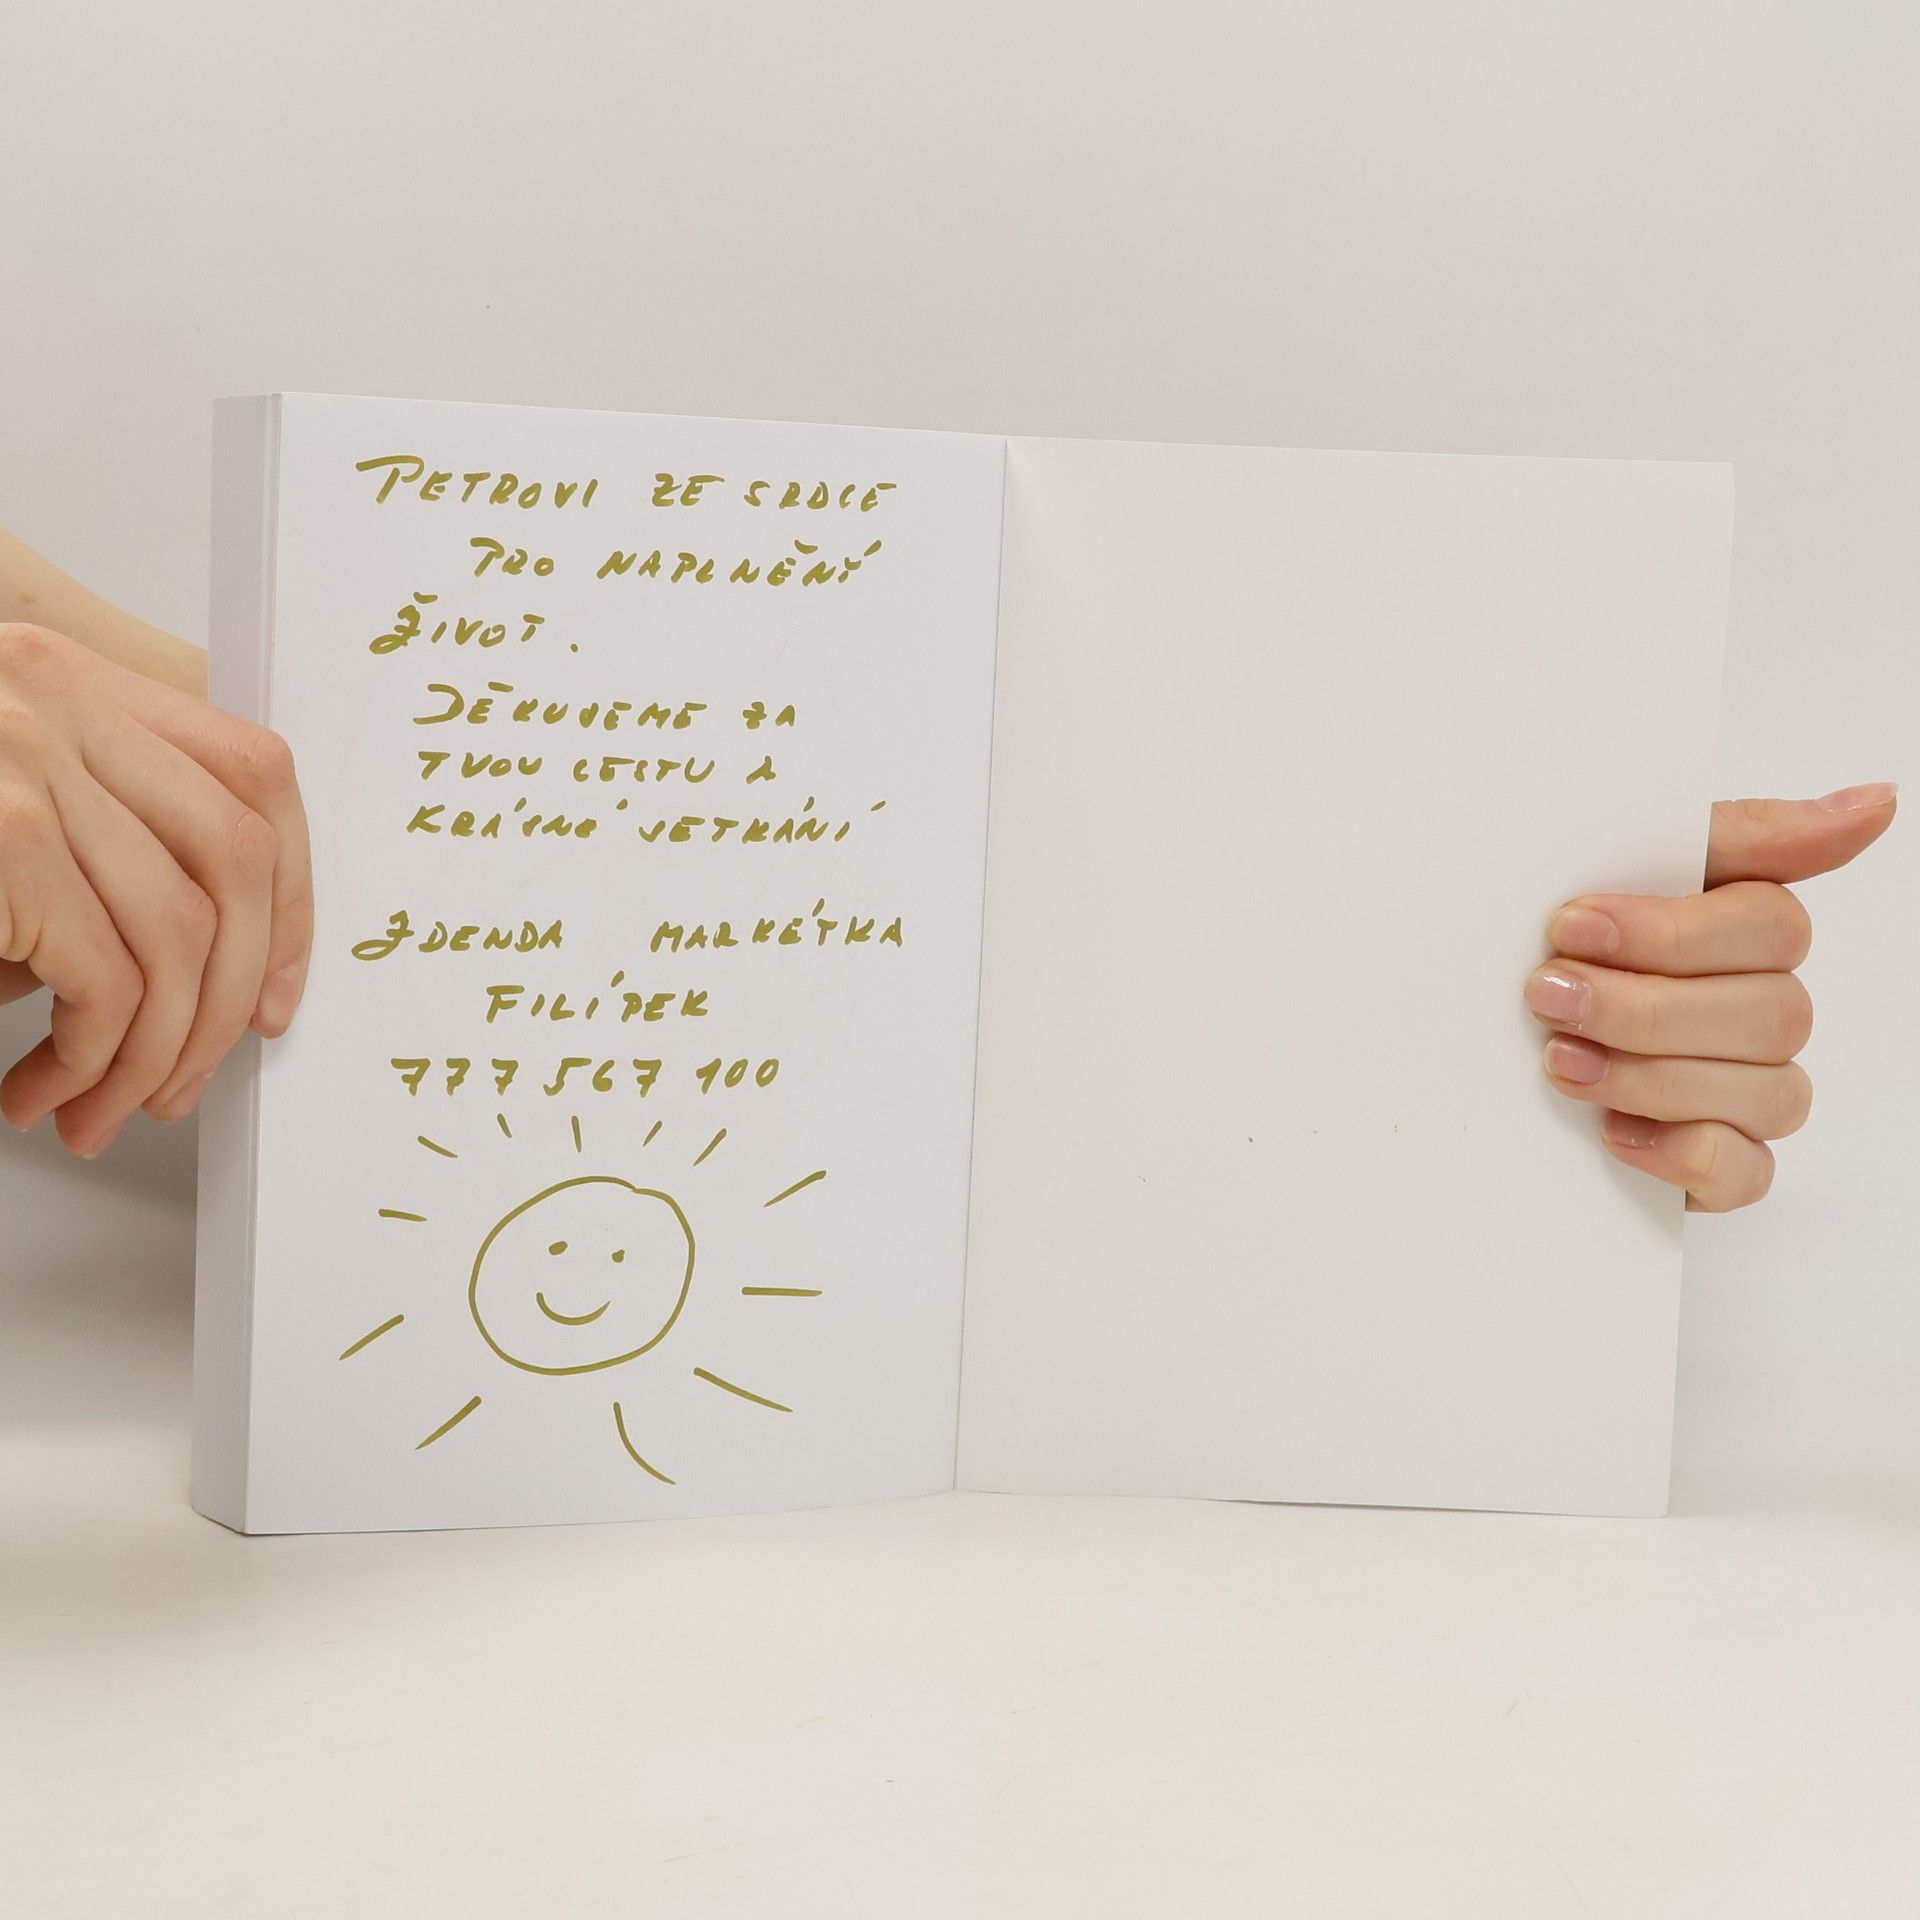 PETROVI ZE SRDCE
PRO NAPLNĚNÍ
ŽIVOT.
DĚKUJEME ZA
TVOU CESTU A
KRÁSNÉ SETKÁNÍ
ZDENDA MARKÉTKA
FILÍPEK
777 567 100